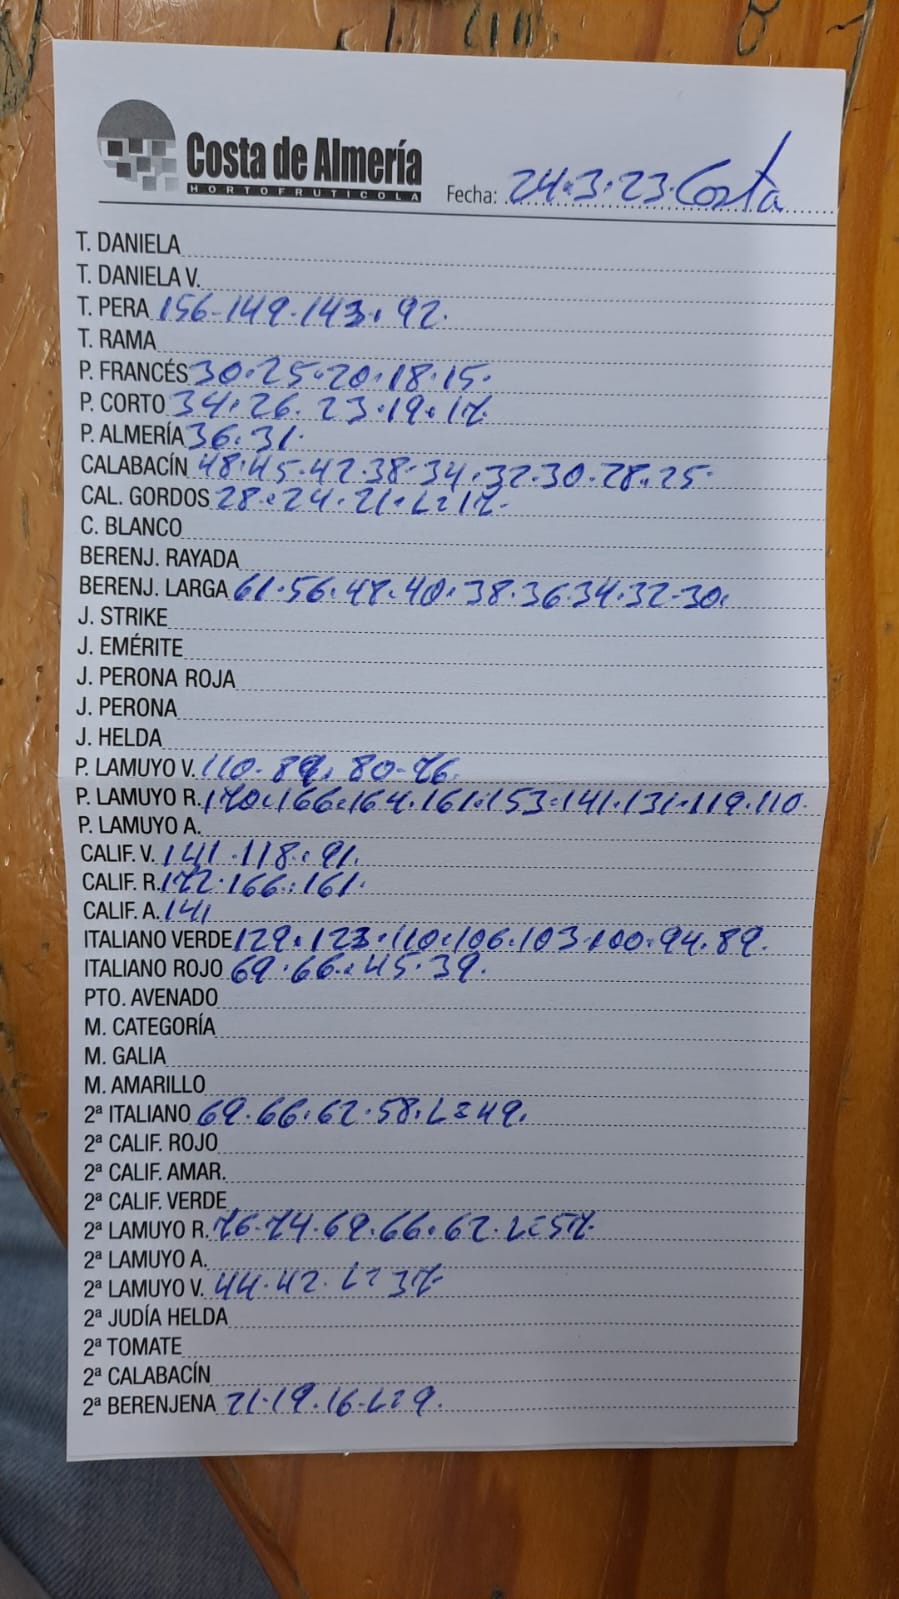 Costa de Almería
HORTOFRUTICOLA
Fecha: 24.3.23. Costa
T. DANIELA
T. DANIELA V.
T. PERA 156-149.143. 92.
T. RAMA
P. FRANCÉS 30.25.20.18.15.
P. CORTO 34.26. 23.19.17.
P. ALMERÍA 36.31.
CALABACÍN 48.45.42.38.34.32.30.28.25.
CAL. GORDOS 28.24.21.L=17.
C. BLANCO
BERENJ. RAYADA
BERENJ. LARGA 61.56.48.40.38.36.34.32-30.
J. STRIKE
J. EMÉRITE
J. PERONA ROJA
J. PERONA
J. HELDA
P. LAMUYO V. 110. 89. 80-76.
P. LAMUYO R. 170.166.164.161.153.141.131.119.110.
P. LAMUYO A.
CALIF. V. 141.118.91.
CALIF. R. 172.166.161.
CALIF. A. 141
ITALIANO VERDE 129.123.110.106.103.100.94.89.
ITALIANO ROJO 69.66.45.39.
PTO. AVENADO
M. CATEGORÍA
M. GALIA
M. AMARILLO
2ª ITALIANO 69.66.62.58.L=49.
2ª CALIF. ROJO
2ª CALIF. AMAR.
2ª CALIF. VERDE
2ª LAMUYO R. 76-74.69.66.62.L=57.
2ª LAMUYO A.
2ª LAMUYO V. 44.42. L=37
2ª JUDÍA HELDA
2ª TOMATE
2ª CALABACÍN
2ª BERENJENA 21.19.16.L=9.